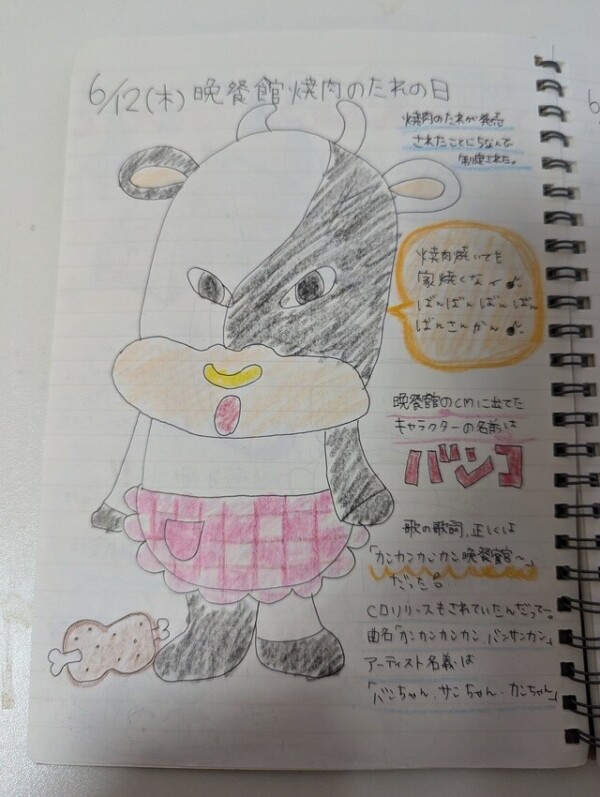 6/12(木) 晩餐館焼肉のたれの日
焼肉のたれが発売
されたことにちなんで
制定された。
焼肉焼いても
家焼くな♪
ばんばんばんばん
ばんさんかん♪
晩餐館のCMに出てた
キャラクターの名前は
バンコ
歌の歌詞、正しくは
「カンカンカンカン晩餐館〜」
だった。
CDリリースもされていたんだって〜。
曲名「カンカンカンカン バンサンカン」
アーティスト名義は
「バンちゃん、サンちゃん・カンちゃん」
6